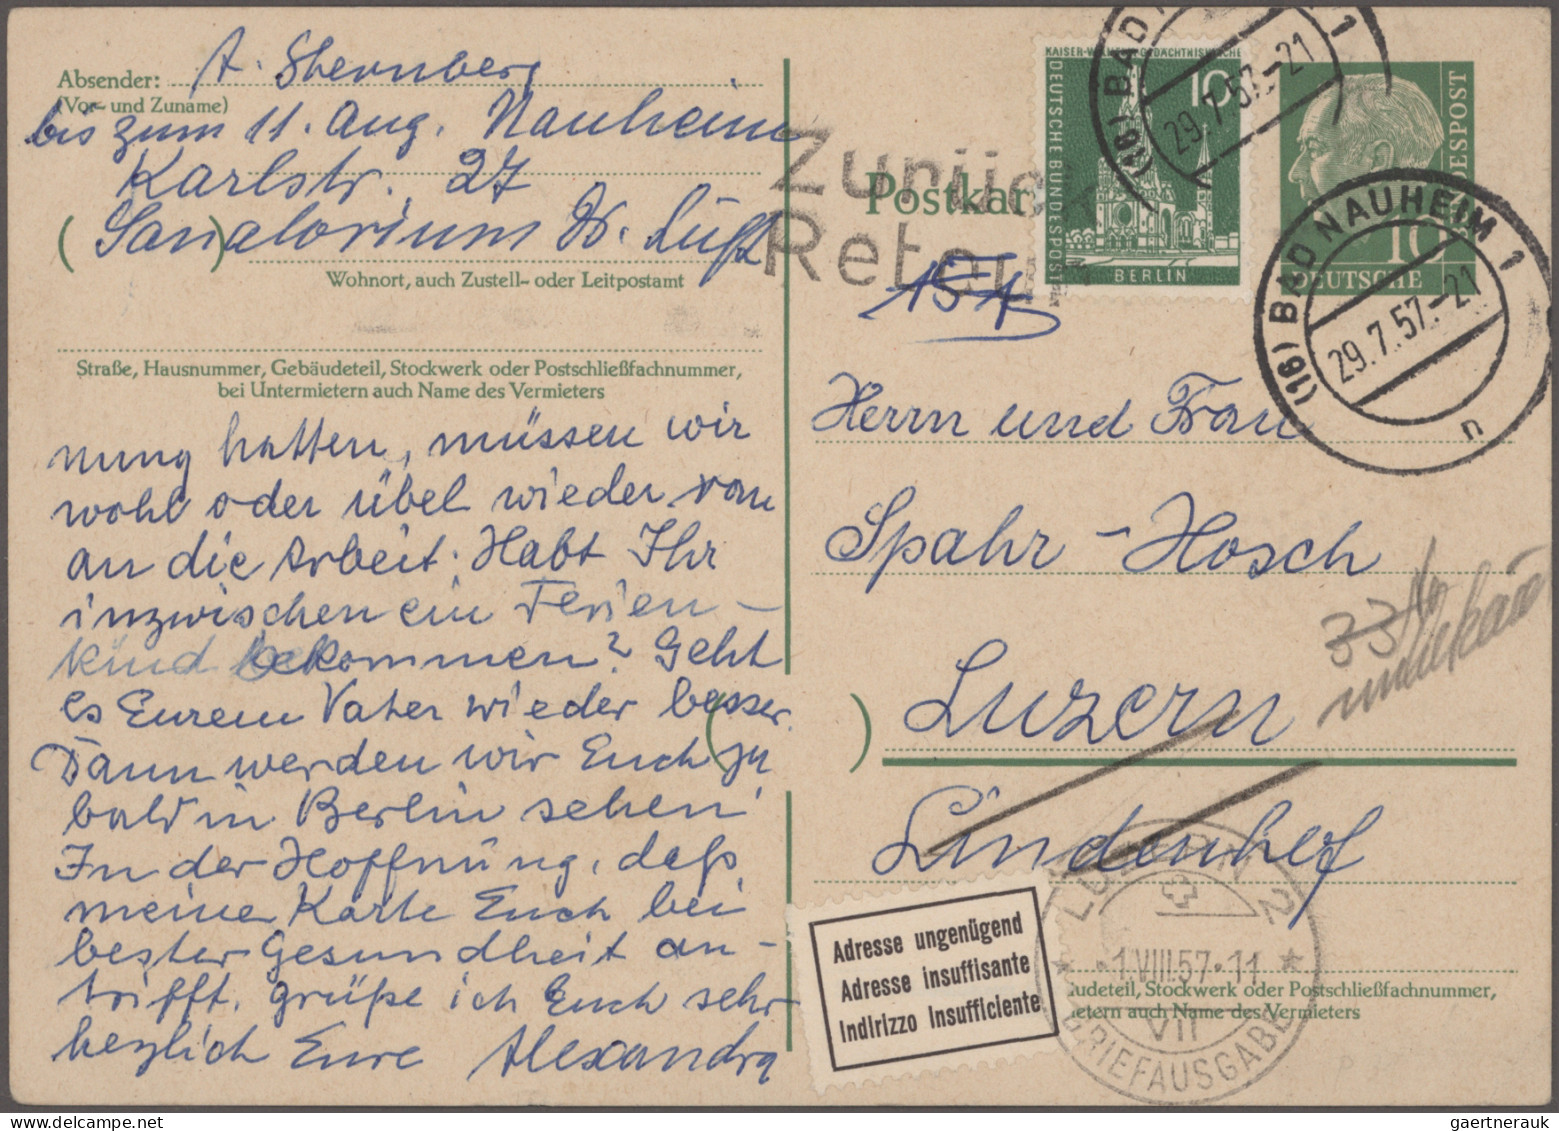 Absender: A. Sternberg
(Vor- und Zuname)
bis zum 11. Aug. Nauheim
Karlstr. 27
(Sanatorium Dr. Lust)
Wohnort, auch Zustell- oder Leitpostamt
Straße, Hausnummer, Gebäudeteil, Stockwerk oder Postschließfachnummer,
bei Untermietern auch Name des Vermieters
nung hatten, müssen wir
wohl oder übel wieder ran
an die Arbeit. Habt Ihr
inzwischen ein Ferien-
kind bekommen? Geht
es Eurem Vater wieder besser.
Dann werden wir Euch ja
bald in Berlin sehen!
In der Hoffnung, daß
meine Karte Euch bei
bester Gesundheit an-
trifft, grüße ich Euch sehr
herzlich Eure Alexandra
Zurück
Retour
Postkarte
KAISER-WILHELM-GEDÄCHTNISKIRCHE
DEUTSCHE BUNDESPOST
10
BERLIN
(16) BAD NAUHEIM 1
29.7.57.-21
DEUTSCHE BUNDESPOST
10
(16) BAD NAUHEIM 1
29.7.57.-21
n
Herrn und Frau
Spahr-Hosch
33
Luzern
Lindenhof
Adresse ungenügend
Adresse insuffisante
Indirizzo insufficiente
LUZERN 2
-1.VIII.57-11
VII
BRIEFAUSGABE
udeteil, Stockwerk oder Postschließfachnummer,
ietern auch Name des Vermieters
gaertnerauk